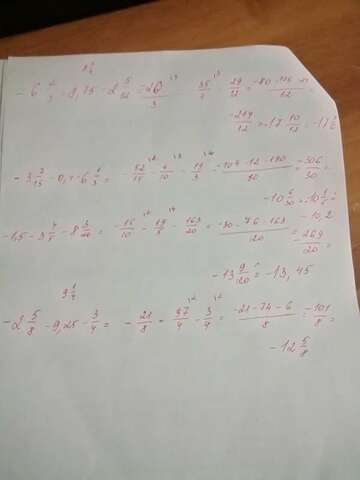 8 3/4
- 6 2/3 - 8,75 - 2 5/12 = -20/3 - 35/4 - 29/12 = -80-105-29/12 =
-219/12 = -17 10/12 = -17 5/6
- 3 7/15 - 0,4 - 6 1/3 = - 52/15 - 4/10 - 19/3 = -104-12-190/30 = -306/30 =
-10 6/30 = -10 1/5 = -10,2
-1,5 - 3 4/5 - 8 3/20 = - 15/10 - 19/5 - 163/20 = -30-76-163/20 = -269/20 =
-13 9/20 = -13,45
9 1/4
-2 5/8 - 9,25 - 3/4 = - 21/8 - 37/4 - 3/4 = -21-74-6/8 = -101/8 =
-12 5/8